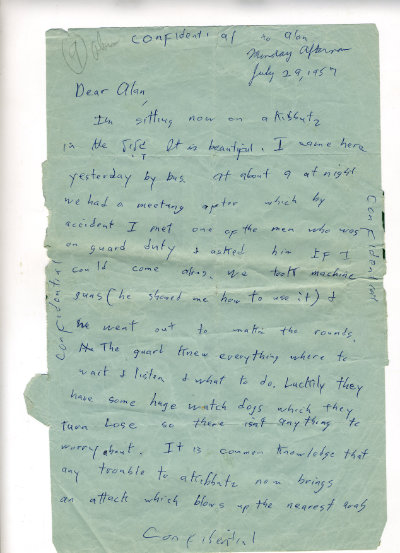 Confidential
to Alan
Monday Afternoon
July 29, 1957
Dear Alan,
Im sitting now on a Kibbutz
in the It is beautiful. I came here
yesterday by bus. At about 9 at night
we had a meeting after which by
accident I met one of the men who was
on guard duty & asked him If I
could come along. We took machine
guns (he showed me how to use it) &
we went out to make the rounds.
The guard knew everything where to
wait & listen & what to do. Luckily they
have some huge watch dogs which they
turn lose so there isnt anything to
worry about. It is common knowledge that
any trouble to a Kibbutz now brings
an attack which blows up the nearest arab
Confidential
Confidential
Confidential